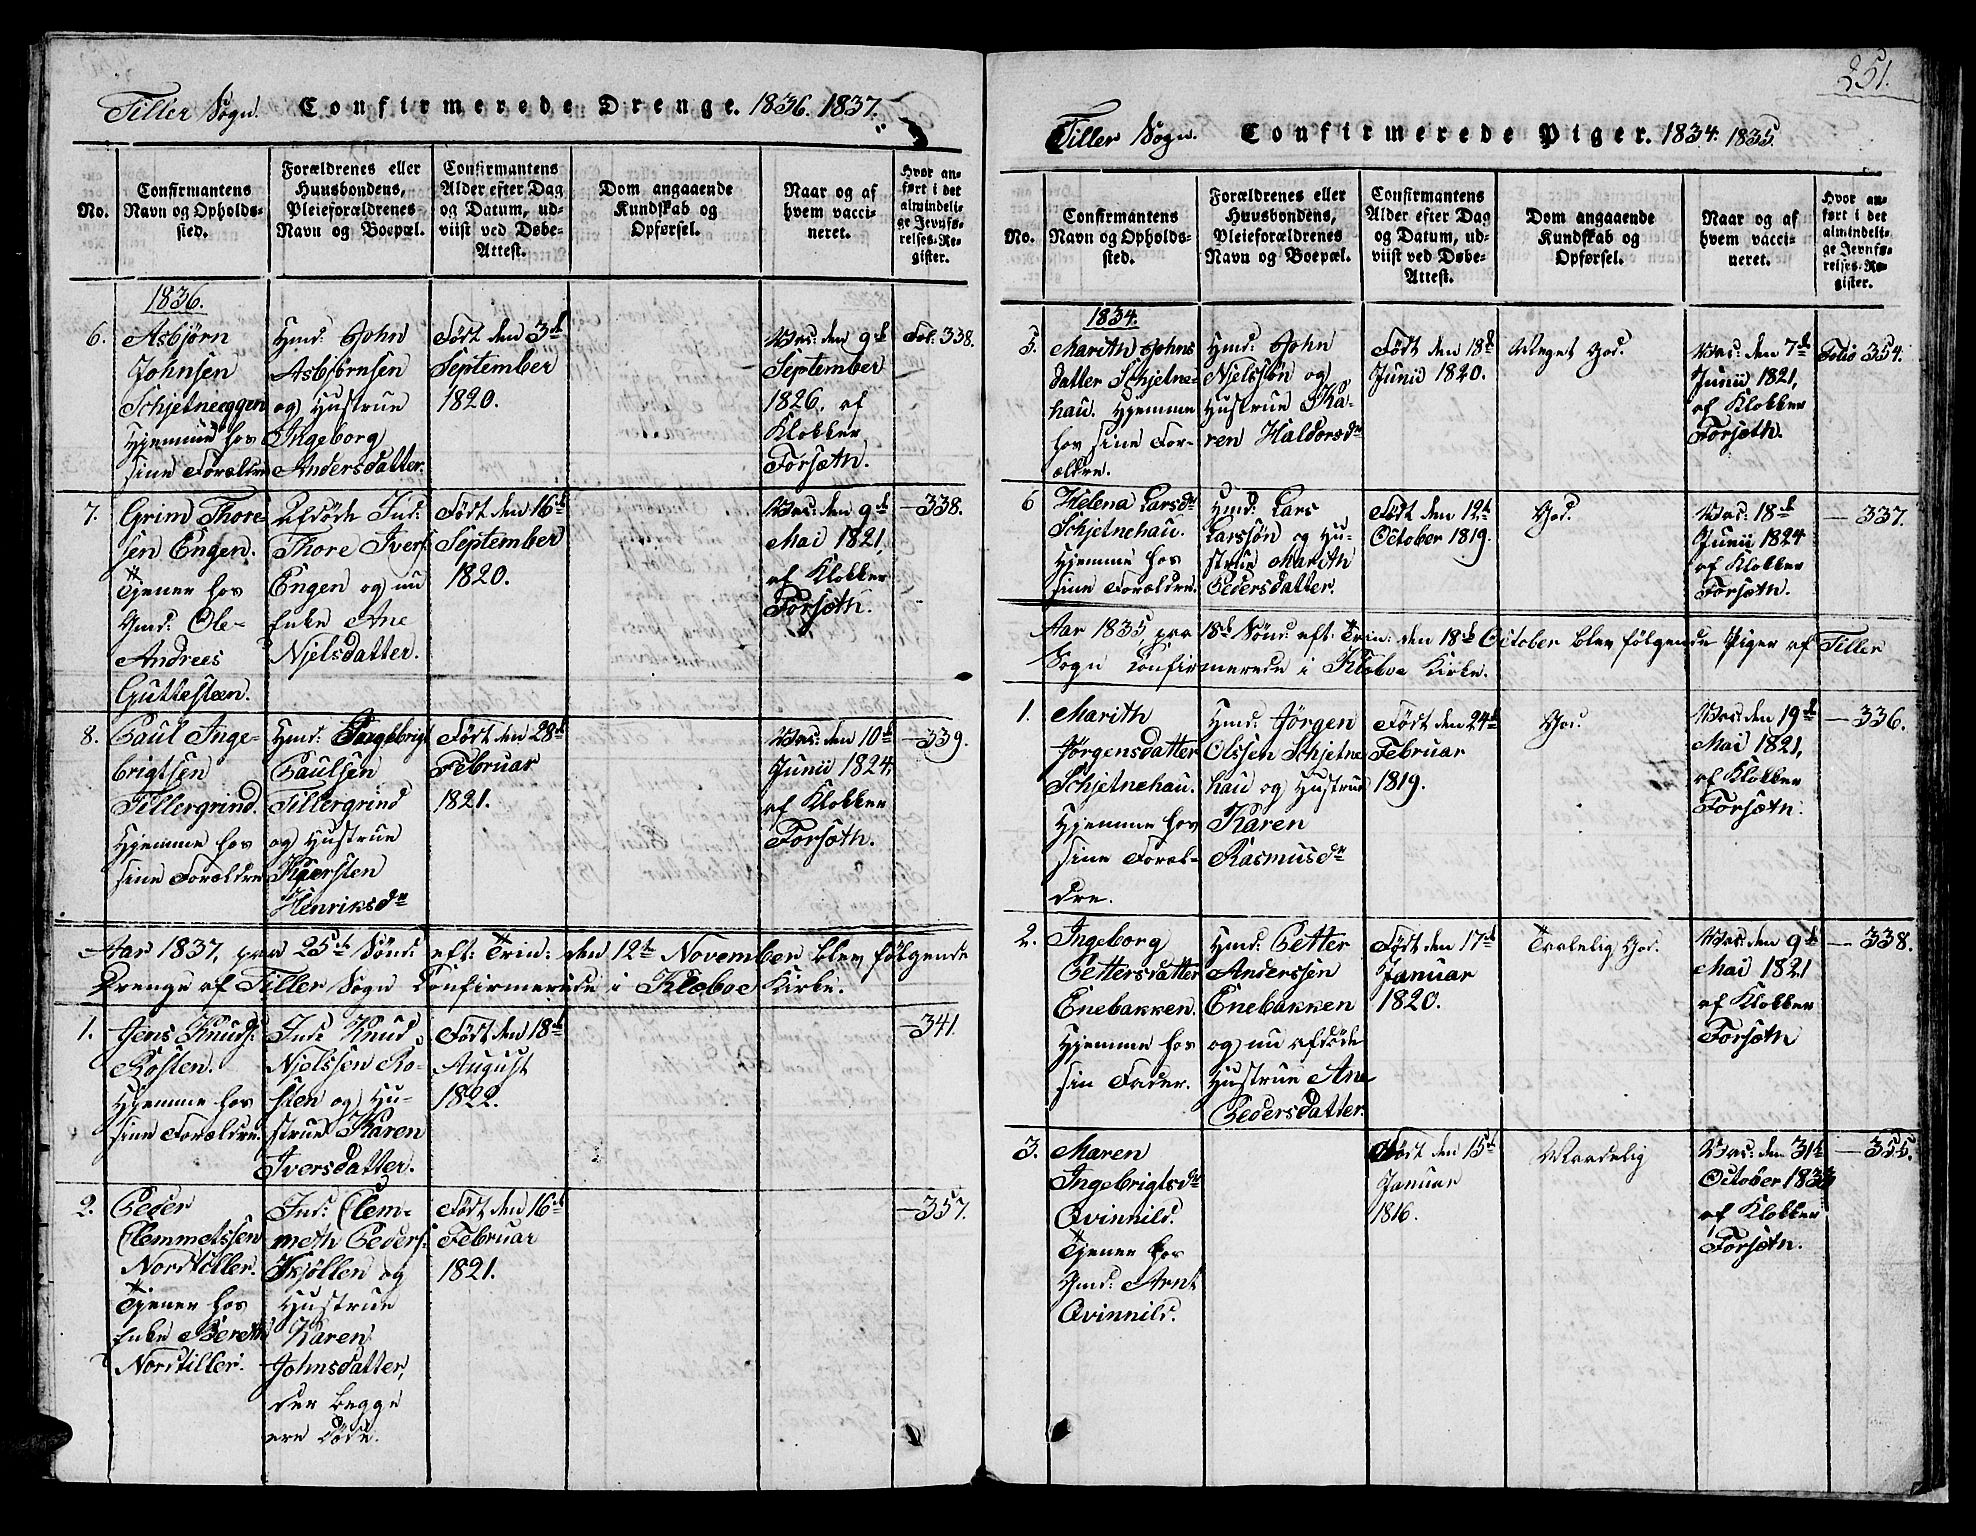 Tiller Sogn. Confirmerede Drenge. 1836. 1837.
No.
Confirmantens
Navn og Opholds-
sted.
Forældrenes eller
Huusbondens,
Pleieforældrenes
Navn og Boepæl.
Confirmantens
Alder efter Dag
og Datum, ud-
viist ved Døbe-
Attest.
Dom angaaende
Kundskab og
Opførsel.
Naar og af
hvem vacci-
neret.
Hvor an-
ført i det
almindeli-
ge Jevnfø-
relses-Re-
gister.
1836.
6.
Asbjørn
Johnsen
Schjetneeggen
Hjemme hos
sine Forældre
Hmd: John
Asbjørnsen
og Hustrue
Ingeborg
Andersdatter.
Født den 3d
September
1820.
Vac: den 9d
September
1826. af
Klokker
Forsæth.
Fol: 338.
7.
Grim Thore-
sen Engen.
Tjener hos
Gmd: Ole
Andrees
Guttesteen.
Afdøde Ind:
Thore Ivers:
Engen og nu
Enke Ane
Njelsdatter.
Født den 16d
September
1820.
Vac: den 9d
Mai 1821,
af Klokker
Forsæth.
— 338.
8.
Paul Inge-
brigtsen
Tillergrind.
Hjemme hos
sine Forældre
Hmd: Ingebrigt
Paulsen
Tillergrind
og Hustrue
Kjersten
Henriksdr
Født den 28d
Februar
1821.
Vac: den 10d
Junii 1824,
af Klokker
Forsæth.
— 339.
Aar 1837, paa 25de Sønd: eft: Trin: den 12te November blev følgende
Drenge af Tiller Sogn Confirmerede i Klæboe Kirke.
1.
Jens Knuds:
Rosten.
Hjemme hos
sine Forældre.
Ind: Knud
Njelssen Ro-
sten og Hu-
strue Karen
Iversdatter.
Født den 18d
August
1822.
— 341.
2.
Peder
Clemmetssen
Nordtiller.
Tjener hos
Enke Bereth
Nordtiller.
Ind: Clem-
meth Peders:
og
Hustrue
Karen
Johnsdatter,
der begge
ere døde.
Født den 16d
Februar
1821.
— 357.
251.
Tiller Sogn. Confirmerede Piger. 1834. 1835.
No.
Confirmantens
Navn og Opholds-
sted.
Forældrenes eller
Huusbondens,
Pleieforældrenes
Navn og Boepæl.
Confirmantens
Alder efter Dag
og Datum, ud-
viist ved Døbe-
Attest.
Dom angaaende
Kundskab og
Opførsel.
Naar og af
hvem vacci-
neret.
Hvor an-
ført i det
almindeli-
ge Jevnfø-
relses-Re-
gister.
1834.
5.
Marith Johns
datter Schjetne-
hau. Hjemme
hos sine For-
ældre.
Hmd: John
Njelssøn og
Hustrue Ka-
ren Haldorsdr
Født den 18d
Junii 1820.
Meget God.
Vac: den 7d
Junii 1821,
af Klokker
Forsæth.
Folio 354.
6
Helena Larsdr
Schjetnehau.
Hjemme hos
sine Forældre.
Hmd: Lars
Larssøn og Hu-
strue Marith
Pedersdatter.
Født den 12te
October 1819.
God.
Vac: 18d
Junii 1824
af Klokker
Forsæth.
— 337.
Aar 1835, paa 18de Sønd: eft: Trin: den 18de October blev følgende Piger af Tiller
Sogn Confirmerede i Klæboe Kirke.
1.
Marith
Jørgensdatter
Schjetnehau.
Hjemme hos
sine Foræl-
dre.
Hmd: Jørgen
Olssen Schjetne
hau og Hustrue
Karen
Rasmusdr
Født den 24d
Februar
1819.
God.
Vac: den 19d
Mai 1821,
af Klokker
Forsæth.
— 336.
2.
Ingeborg
Pettersdatter
Enebakken.
Hjemme hos
sin Fader.
Hmd: Petter
Anderssen
Enebakken
og nu afdøde
Hustrue Ane
Pedersdatter.
Født den 17d
Januar
1820.
Taalelig God.
Vac: den 9d
Mai 1821
af Klokker
Forsæth
— 338.
3.
Maren
Ingebrigtsdr
Qvinnild.
Tjener hos
Gmd: Arnt
Qvinnild.
Født den 15d
Januar
1816.
Maadelig
Vac: den 31te
October
af Klokker
Forsæth.
— 355.